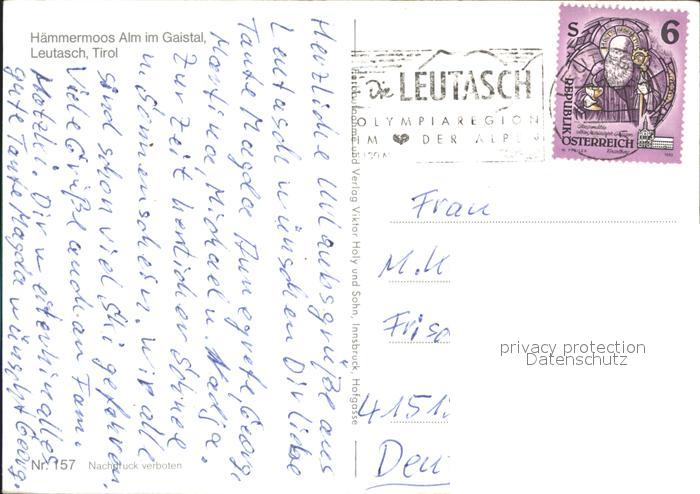 Hämmermoos Alm im Gaistal,
Leutasch, Tirol
Herzliche Urlaubsgrüße aus
Leutasch wünschen Dir liebe
Tante Magda Annegrete, Georg,
Martina, Michael u. Nadja.
Zur Zeit herrlicher Schnee
u. Sonnenschein. Wir alle
sind schon viel Ski gefahren.
Viele Grüße auch an Fam.
Dir weiterhin alles
gute Tante Magda wünscht Georg.
Nr. 157 Nachdruck verboten
Verlag Viktor Holy und Sohn, Innsbruck, Hofgasse
Die LEUTASCH
OLYMPIAREGION
IM ❤ DER ALPEN
S 6
REPUBLIK
ÖSTERREICH
Frau
M. K
Fris
4151
Deu
privacy protection
Datenschutz